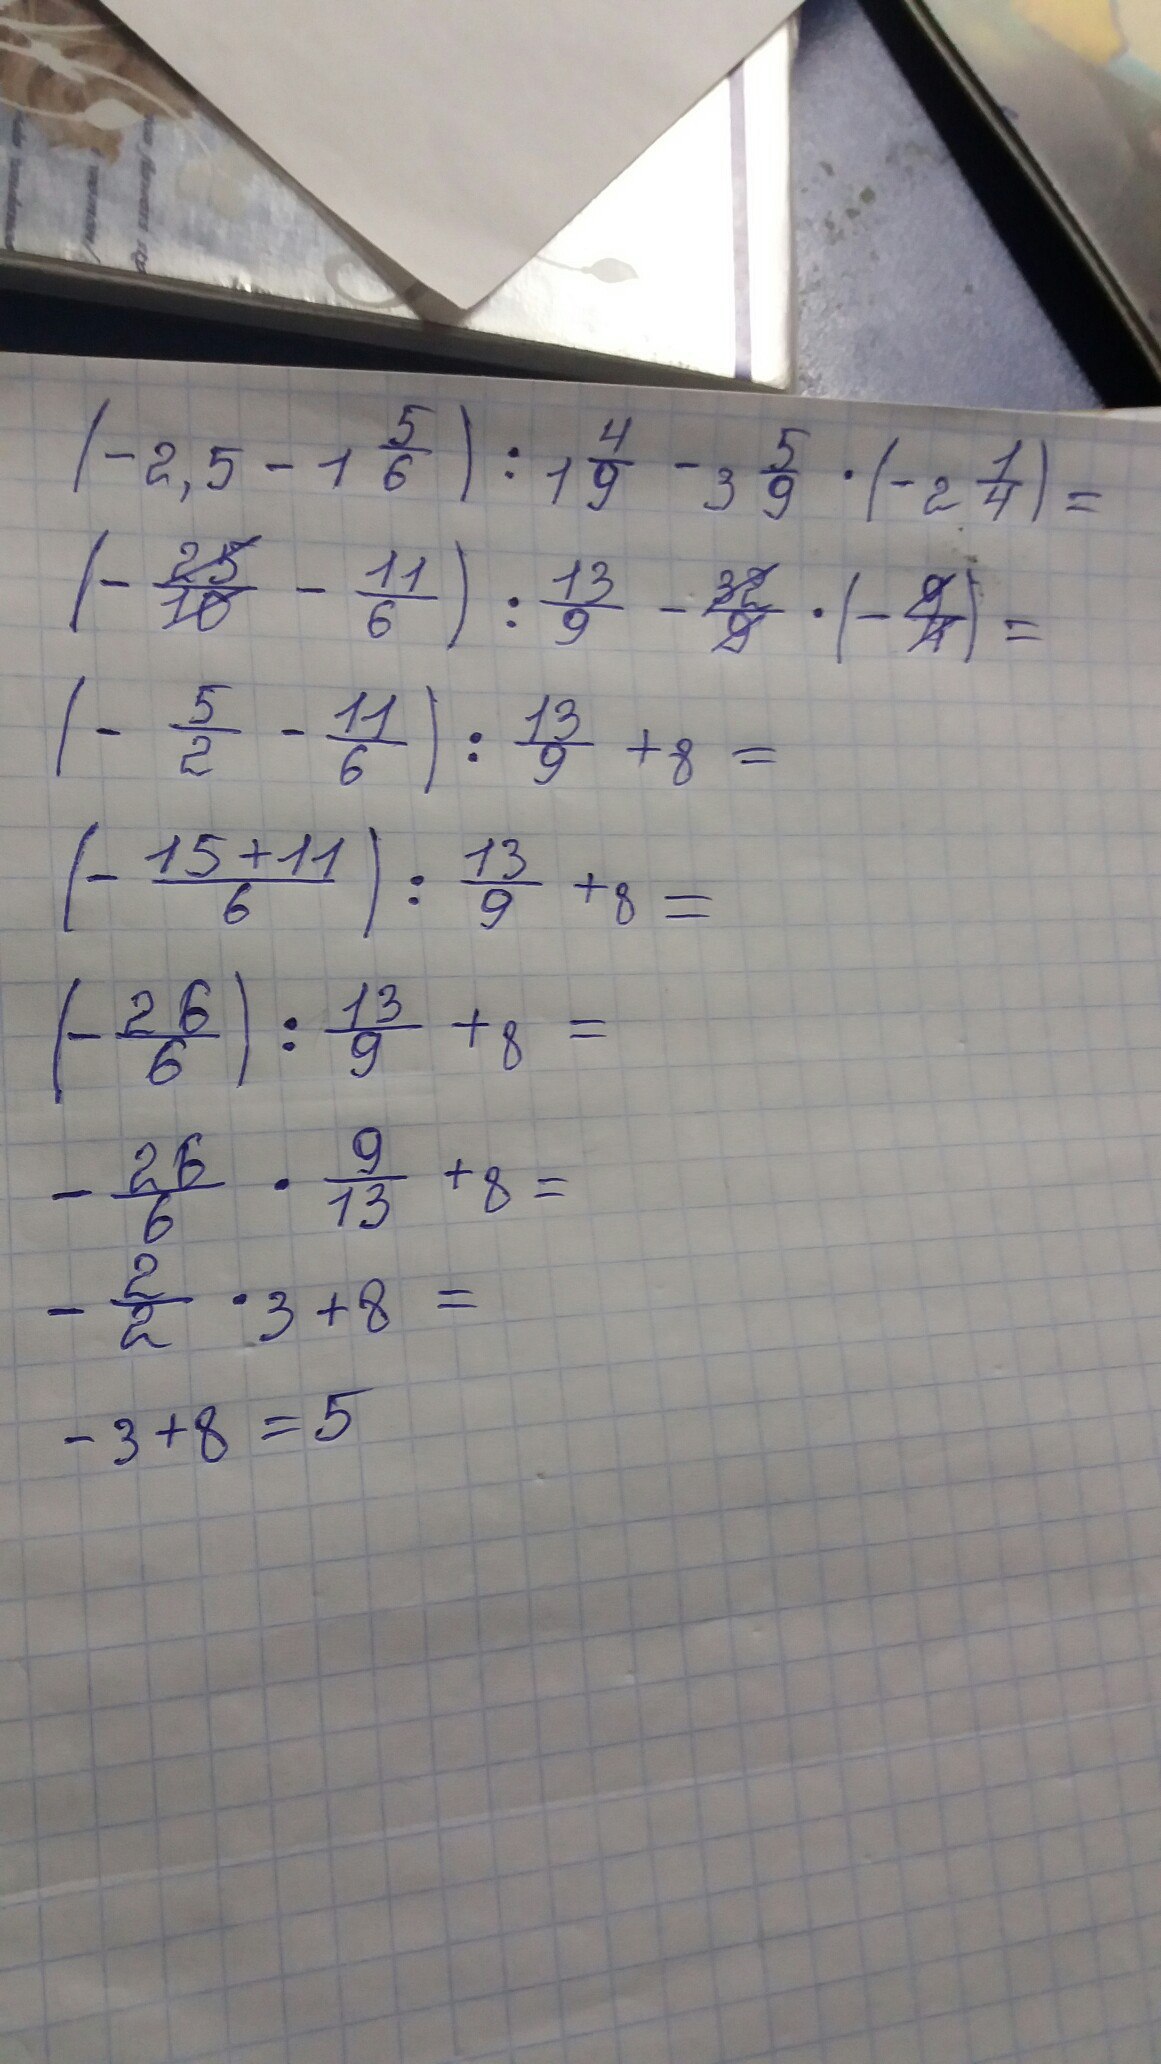 (-2,5 - 1 5/6) : 1 4/9 - 3 5/9 · (-2 1/4) =
(- 25/10 - 11/6) : 13/9 - 32/9 · (- 9/4) =
(- 5/2 - 11/6) : 13/9 + 8 =
(- 15+11/6) : 13/9 + 8 =
(- 26/6) : 13/9 + 8 =
- 26/6 · 9/13 + 8 =
- 2/2 · 3 + 8 =
- 3 + 8 = 5